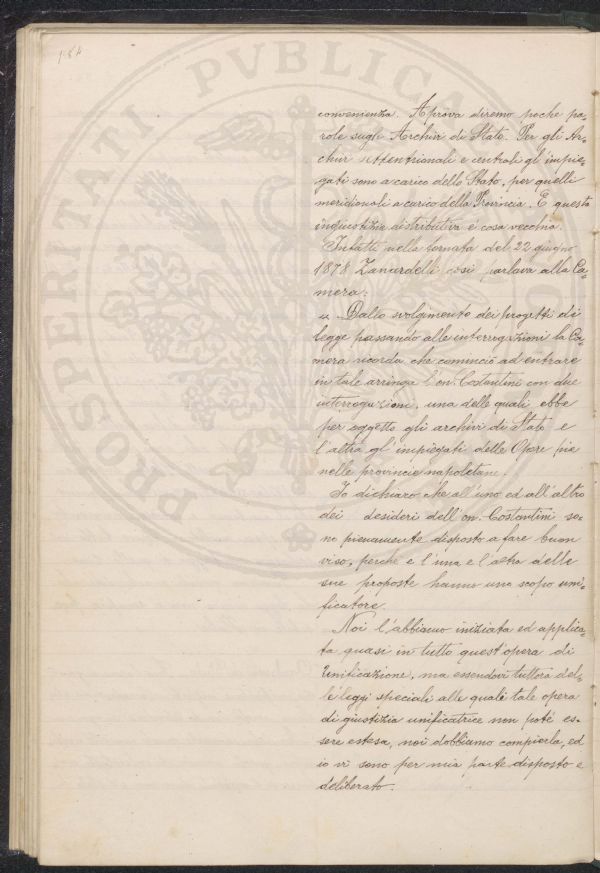 184
PROPRIETATI PVBLICAE
convenienza. A prova diremo poche pa=
role sugli Archivi di Stato. Per gli Ar=
chivi settentrionali e centrali gl'impie=
gati sono a carico dello Stato, per quelli
meridionali a carico della Provincia. E questa
ingiustizia distributiva è cosa vecchia.
Infatti nella tornata del 22 giugno
1878 Zanardelli così parlava alla Ca=
mera:
" Dallo svolgimento dei progetti di
legge passando alle interrogazioni la Ca=
mera ricorda che cominciò ad entrare
in tale arringa l'on. Costantini con due
interrogazioni, una delle quali ebbe
per oggetto gli archivi di Stato e
l'altra gl'impiegati delle Opere pie
nelle provincie napoletane.
Io dichiaro che all'uno ed all'altro
dei desideri dell'on. Costantini so=
no pienamente disposto a fare buon
viso, perchè e l'una e l'altra delle
sue proposte hanno uno scopo uni=
ficatore.
Noi l'abbiamo iniziata ed applica=
ta quasi in tutto quest'opera di
unificazione, ma essendovi tuttora del=
le leggi speciali alle quali tale opera
di giustizia unificatrice non potè es=
sere estesa, noi dobbiamo compierla, ed
io vi sono per mia parte disposto e
deliberato.